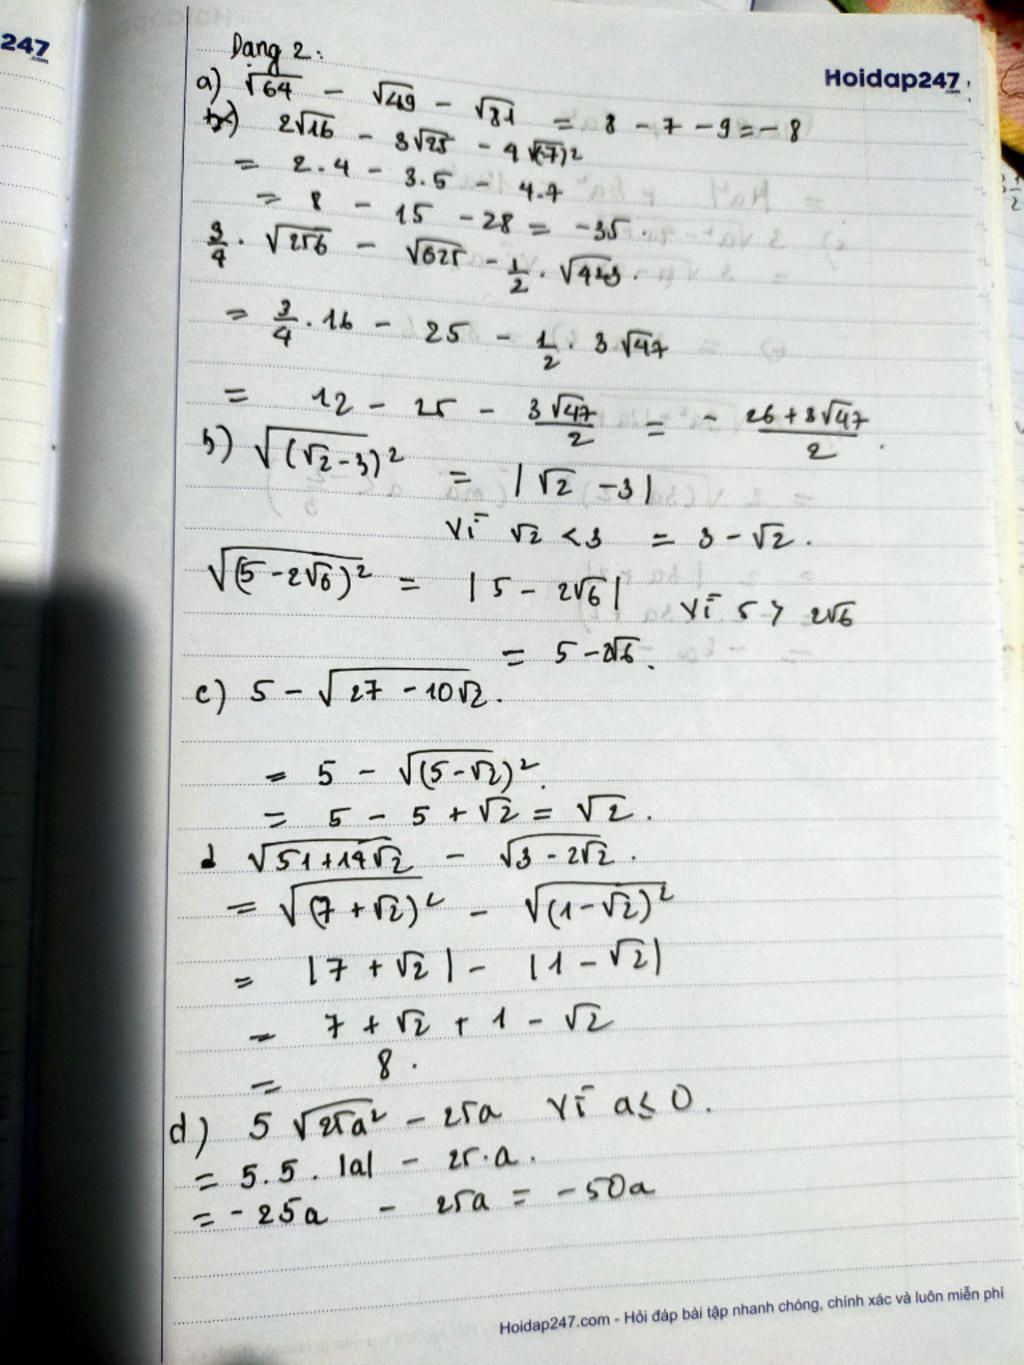 247
.com
Hoidap247
.com
Dạng 2:
a) √64 - √49 - √81 = 8 - 7 - 9 = - 8
2√16 - 3√25 - 4√(-7)²
= 2.4 - 3.5 - 4.7
= 8 - 15 - 28 = -35.
3/4 . √256 - √625 - 1/2 . √423.
= 3/4 . 16 - 25 - 1/2 . 3√47
= 12 - 25 - 3√47/2 = - 26 + 3√47/2.
b) √(√2-3)² = |√2 -3|
Vì √2 < 3 = 3 - √2.
√(5-2√6)² = |5 - 2√6| Vì 5 > 2√6
= 5 - 2√6.
c) 5 - √27 - 10√2.
= 5 - √(5-√2)².
= 5 - 5 + √2 = √2.
d √51+14√2 - √3 - 2√2.
= √(7 + √2)² - √(1-√2)²
= |7 + √2| - |1 - √2|
= 7 + √2 + 1 - √2
= 8.
d) 5 √25a² - 25a Vì a≤ 0.
= 5.5. |a| - 25.a.
= - 25a - 25a = -50a
Hoidap247.com - Hỏi đáp bài tập nhanh chóng, chính xác và luôn miễn phí